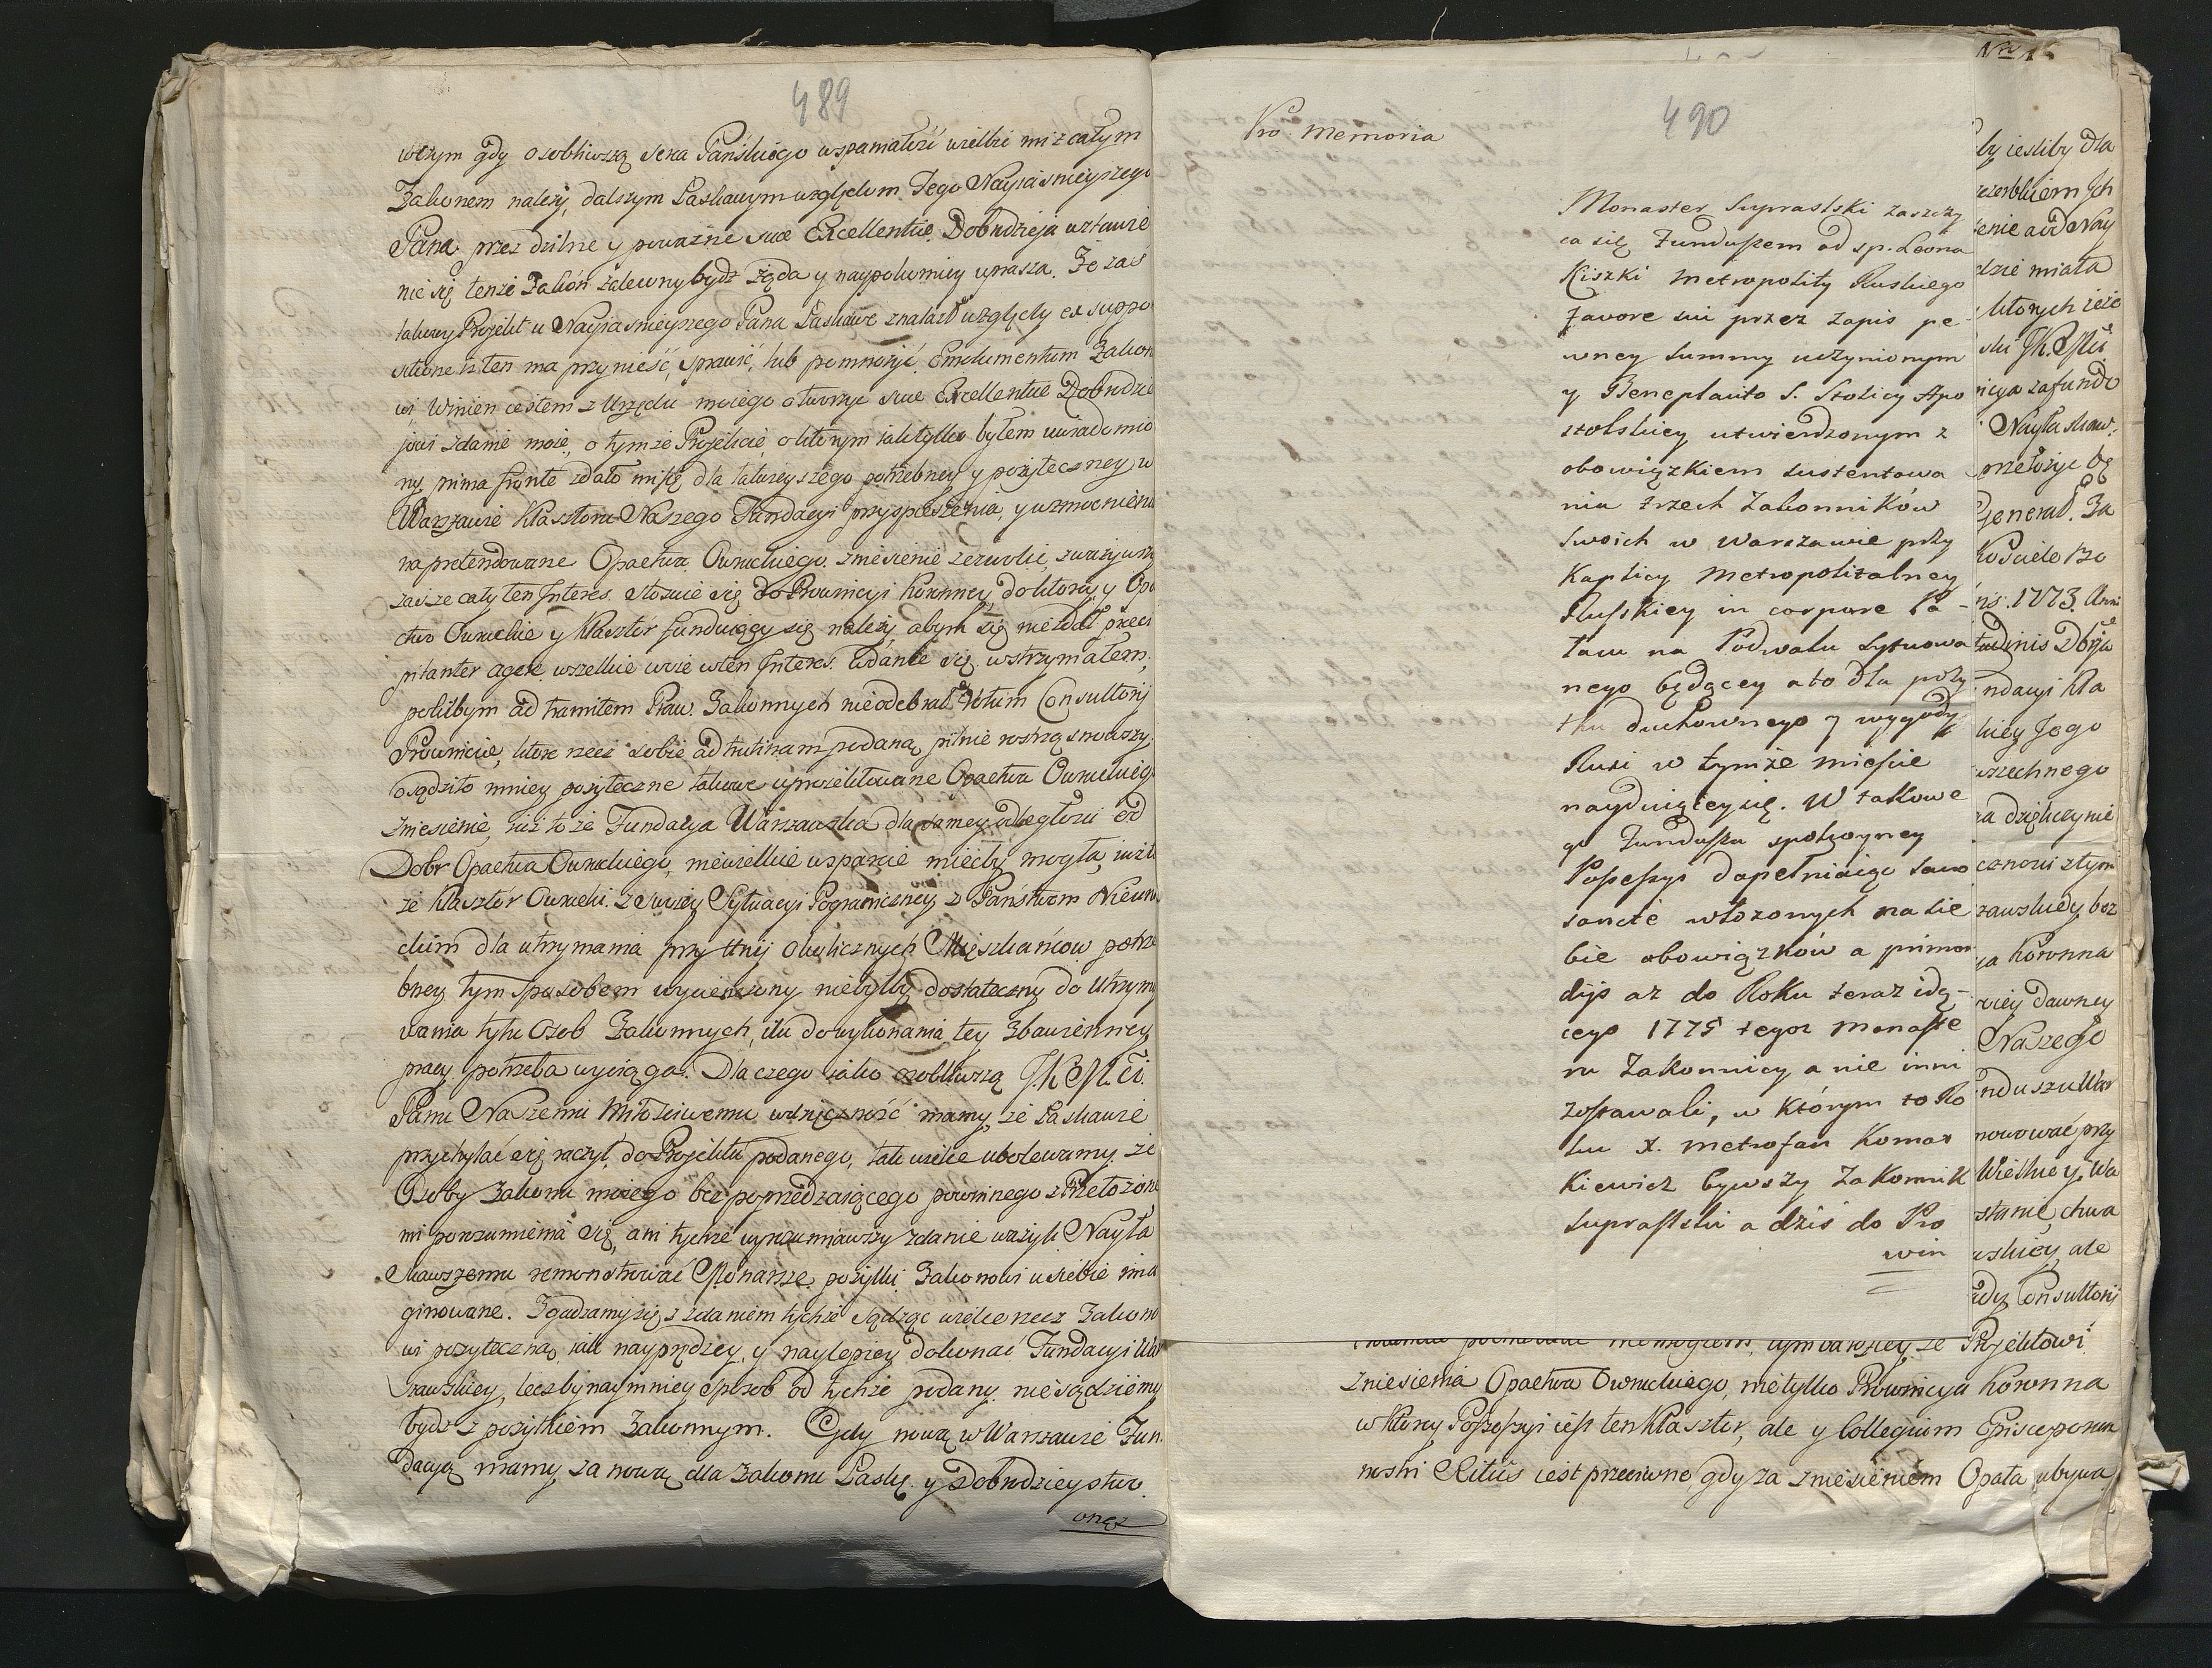 489
w czym gdy osobliwszą serca Pańskiego wspaniałość wielbić mi z całym
Zakonem należy, dalszym Łaskawym względom Jego Nayiaśnieyszego
Pana przez dzilne y poważne suae Excellentiae Dobrodzieja wstawie
nie się tenże Zakón zalewny bydź żąda y naypokorniey uprasza. Że zaś
takowy Projekt u Nayiaśnieyszego Pana Łaskawe znalazł względy ex suppo
sitione iż ten ma przynieść, sprawić, lub pomnożyć Emolumentum Zakon
wi Winien iestem z Urzędu moiego otworzyć suae Excellentiae Dobrodzie
jowi zdanie moie, o tymże Projekcie, o którym iak tylko byłem uwiadomio
ny, prima fronte zdało mi się, dla łatwieyszego potrzebney y pożyteczney w
Warszawie Klasztoru Naszego Fundacyi przyspieszenia, y wzmocnienia
na pretendowane Opactwa Owruckiego zniesienie zezwolić, zważywszy
zaś że cały ten Interes stosuie się do Prowincyi Koronney, do którey y Opa
ctwo Owruckie y Klasztor funduiący się należy, abym się nie zdał praeci
pitanter agere, wszelkie moie w ten Interes wdanie się wstrzymałem,
pokilbym ad tramitem Praw Zakonnych nie odebrał Votum Consultorij
Prowincie, które rzecz sobie ad trutinam podaną pilnie roztrząsnowszy,
osądziło mniey pożyteczne takowe uprojektowane Opactwa Owruckieg
zniesienie, iuż to że Fundacya Warszawska dla samey odległości od
Dobr Opactwa Owruckiego, niewielkie wsparcie mieć by mogła, iuż t
że Klasztór Owrucki z swoiey Sytuacyi Pograniczney z Państwem Nieuni
ckim dla utrzymania przy Unij okolicznych Mieszkańców potrze
bney tym sposobem wycieńczony nie byłby dostateczny do utrzymy
wania tylu Osob Zakonnych, ilu do wykonania tey Zbawienney
pracy potrzeba wyciąga. Dla czego iako osobliwszą J.K.Mci.
Panu Naszemu Miłościwemu wdzięczność mamy, że Łaskawie
przychylać się raczył, do Projektu podanego, tak wielce ubolewamy że
Osoby Zakonu moiego bez poprzedzaiącego powinnego z Przełożone
mi porozumienia się, ani tychże wyrozumiawszy zdanie ważyli Nayła
skawszemu remonstrować Monarsze pożytki Zakonowi u siebie ima
ginowane. Zgadzamy się z zdaniem tychże sądząc wielce rzecz Zakono
wi pożyteczną, iak nayprędzey, y naylepiey dokonać Fundacyi Wa
rszawskiey, lecz by naymniey sposob od tychże podany nie sądziemy
bydź z pożytkiem Zakonnym. Gdy nową w Warszawie Fun
dacyą mamy, za nową dla Zakonu Łaskę y Dobrodzieystwo
onęż
490
Pro memoria
Monaster Suprastski zaszczy
ca się Funduszem od sp. Leona
Kiszki Metropolity Ruskiego
favore sui przez zapis pe-
wney summy uczynionym
y Beneplacito S. Stolicy Apo
stolskiey utwierdzonym z
obowiązkiem sustentowa
nia trzech Zakonników
swoich w Warszawie przy
Kaplicy Metropolitalney
Ruskiey in corpore Pa-
łacu na Podwalu sytuowa
nego będącey a to dla poży
tku duchownego y wygody
Rusi w tymże mieście
nayduiącey się. W takowe
go Funduszu spokoyney
Possessyi dopełniaiąc sacro
sancte włożonych na sie
bie obowiązków a primor
dijs aż do Roku teraz idą-
cego 1775 tegoż Monaste
ru Zakonnicy a nie inni
zostawali, w którym to Ro
ku X. Metrofan Komar
kiewicz bywszy Zakonnik
Suprastski a dziś do Pro
win
Nro 16
by iesliby dla
szczerbkiem Ich
enie a id Nay
dzie miała
których ieże
ski J.K.Mci
ncya zafundo
Nayłaskaw.
przełożyć
General. Za
Kościelo Bo
nis. 1773. Anni
tudinis Dobrze
ndacyi Kla
kiey Jego
wszechnego
za dziękczynie
cznowi z tym
zawskiey, bez
ya Koronna
wiey dawney
Naszego
nduszu War
nować przy
Wielkiey Wa
stanie, chwa
wskiey, ale
edy Consultorij
tym bardziey, że Projektowi
zniesienia Opactwa Owruckiego, nie tylko Prowincya Koronna
w którey Possessyi iest ten Klasztor, ale y Collegium Episcoporum
nostri Ritus iest przeciwne, gdy za zniesieniem Opata ubywa